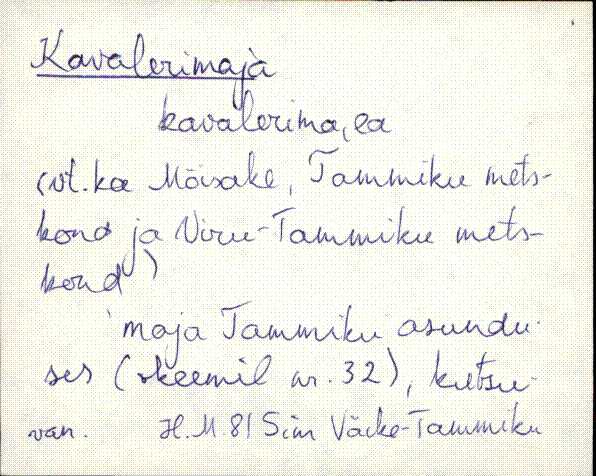 Kavalerimaja
kavalerima, ea
(vt. ka Mõisake, Tammiku mets-
kond ja Viru-Tammiku mets-
kond)
maja Tammiku asundu-
ses (skeemil nr. 32), kutsu-
van. H.M. 81 Sim Väike-Tammiku